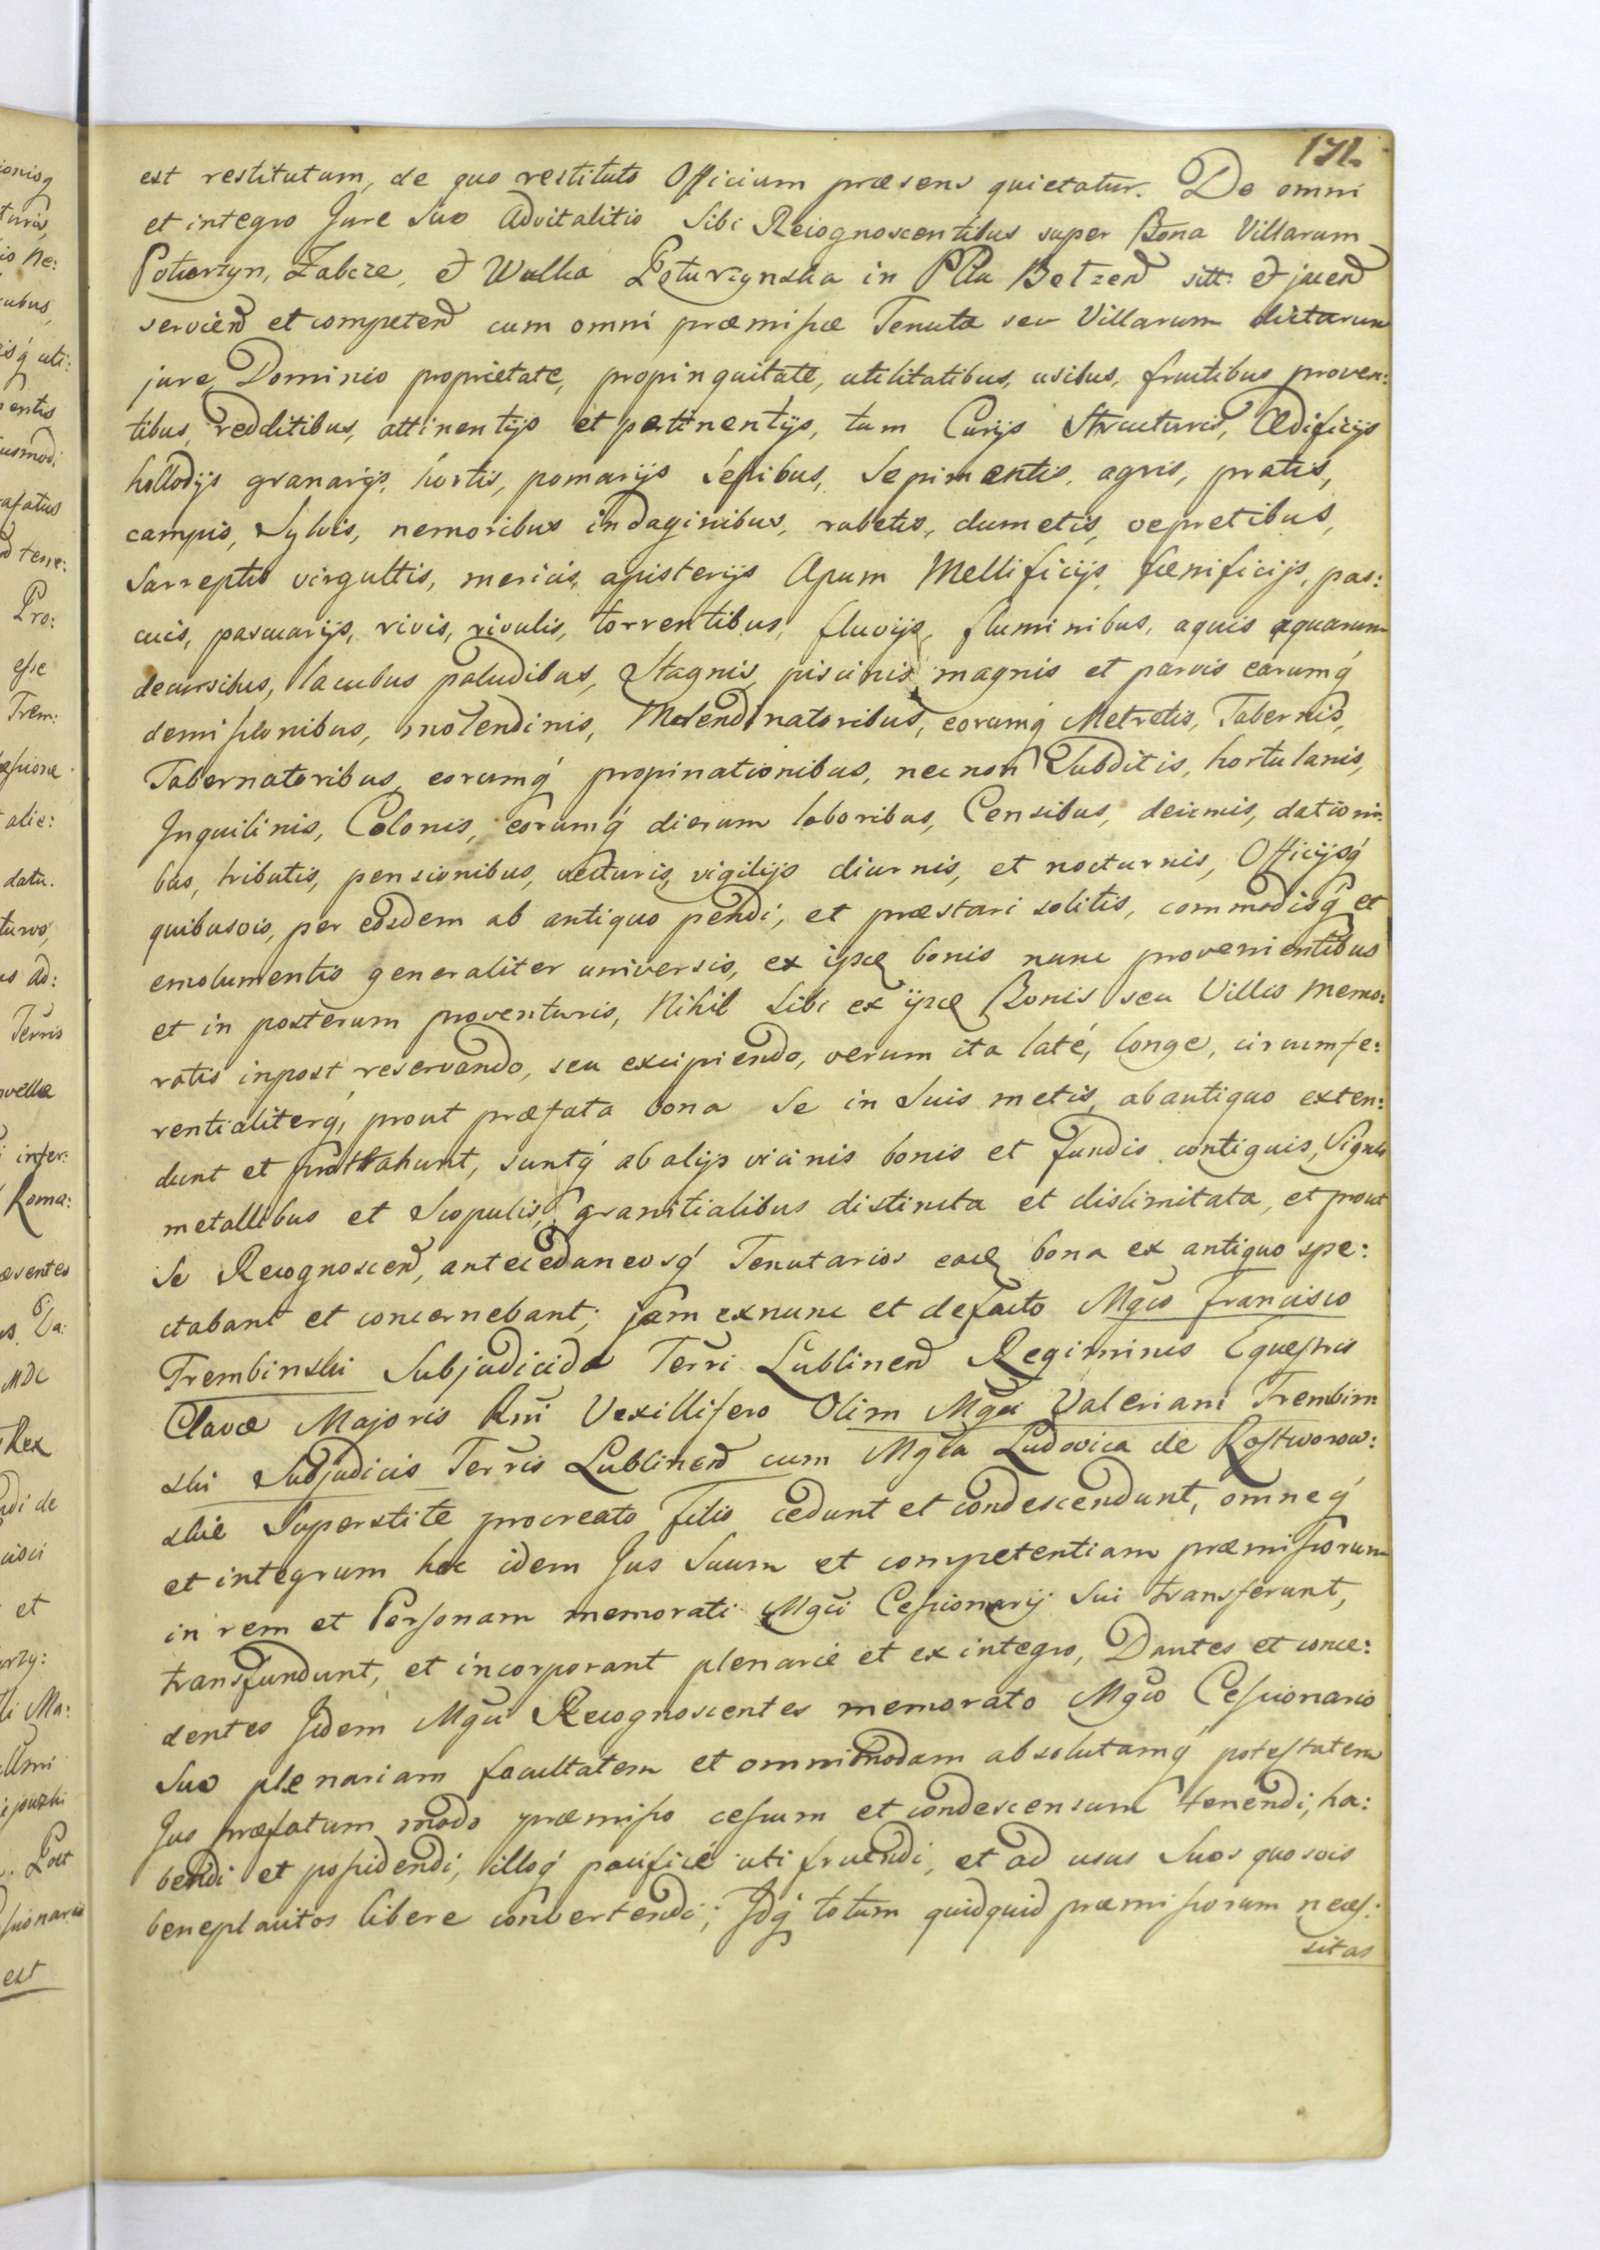 171.
est restitutum, de quo restituto Officium præsens quietatur. De omni
et integro Jure Suo Advitalitio Sibi Recognoscentibus super Bona Villarum
Poturzyn, Zabcze, et Wulka Poturzynska in Pltu Betzen sitt: et jacen
servien et competen cum omni præmissæ Tenutæ seu Villarum dictarum
jure, Dominio proprietate, propinquitate, utilitatibus, usibus, fructibus proven:
tibus, redditibus, attinentijs et pertinentijs, tum Curijs Structuris, Ædificijs
hollodijs granarijs, hortis, pomarijs Sepibus, Sepimentis, agris, pratis,
campis, Sylvis, nemoribus indaginibus, rubetis, dumetis, vepretibus,
Sarreptis virgultis, mericis, apisterijs Apum Mellificijs, fænificijs, pas:
cuis, pascuarijs, rivis, rivulis, torrentibus, fluvijs, fluminibus, aquis aquarum
decursibus, lacubus paludibus, Stagnis, piscinis magnis et parvis earumq́
demissionibus, molendinis, Molendinatoribus, eorumq́ Metretis, Tabernis,
Tabernatoribus, eorumq́ propinationibus, necnon Subditis, hortulanis,
Inquilinis, Colonis, eorumq́ dierum laboribus, Censibus, decimis, dationi:
bus, tributis, pensionibus, vecturis, vigilijs diurnis, et nocturnis, Officijsq́
quibusvis, per eosdem ab antiquo pendi, et præstari solitis, commodisq́ et
emolumentis generaliter universis, ex ijsdem bonis nunc provenientibus
et in posterum proventuris, Nihil Sibi ex ijsdem Bonis seu Villis memo:
ratis inpost reservando, seu excipiendo, verum ita laté, longe, circumfe:
rentialiterq́, prout præfata bona Se in Suis metis, abantiquo exten:
dunt et protrahunt, suntq́ ab alijs vicinis bonis et fundis contiguis, Signis
metallibus et Scopulis, granitialibus distincta et dislimitata, et prout
Se Recognoscen, antecedaneosq́ Tenutarios eadem bona ex antiquo spe:
ctabant et concernebant; jam exnunc et defacto Mgco Francisco
Trembinski Subjudicida Terri Lublinen Regiminis Equestris
Clavæ Majoris Rni Vexillifero Olim Mgci Valeriani Trembin
ski Subjudicis Terris Lublinen cum Mgca Ludovica de Rostworow:
skie Superstite procreato Filio cedunt et condescendunt, omneq́
et integrum hoc idem Jus Suum et competentiam præmissorum
in rem et Personam memorati Mgci Cessionarij Sui transferunt,
transfundunt, et incorporant plenarie et ex integro, Dantes et conce:
dentes Jidem Mgci Recognoscentes memorato Mgco Cessionario
Suo plenariam facultatem et omnimodam absolutamq́ potestatem
Jus præfatum modo præmisso cessum et condescensum tenendi, ha:
bendi et possidendi, illoq́ pacificé uti fruendi, et ad usus Suos quosvis
beneplacitos libere convertendi; Idq́ totum quidquid præmissorum neces:
sitas